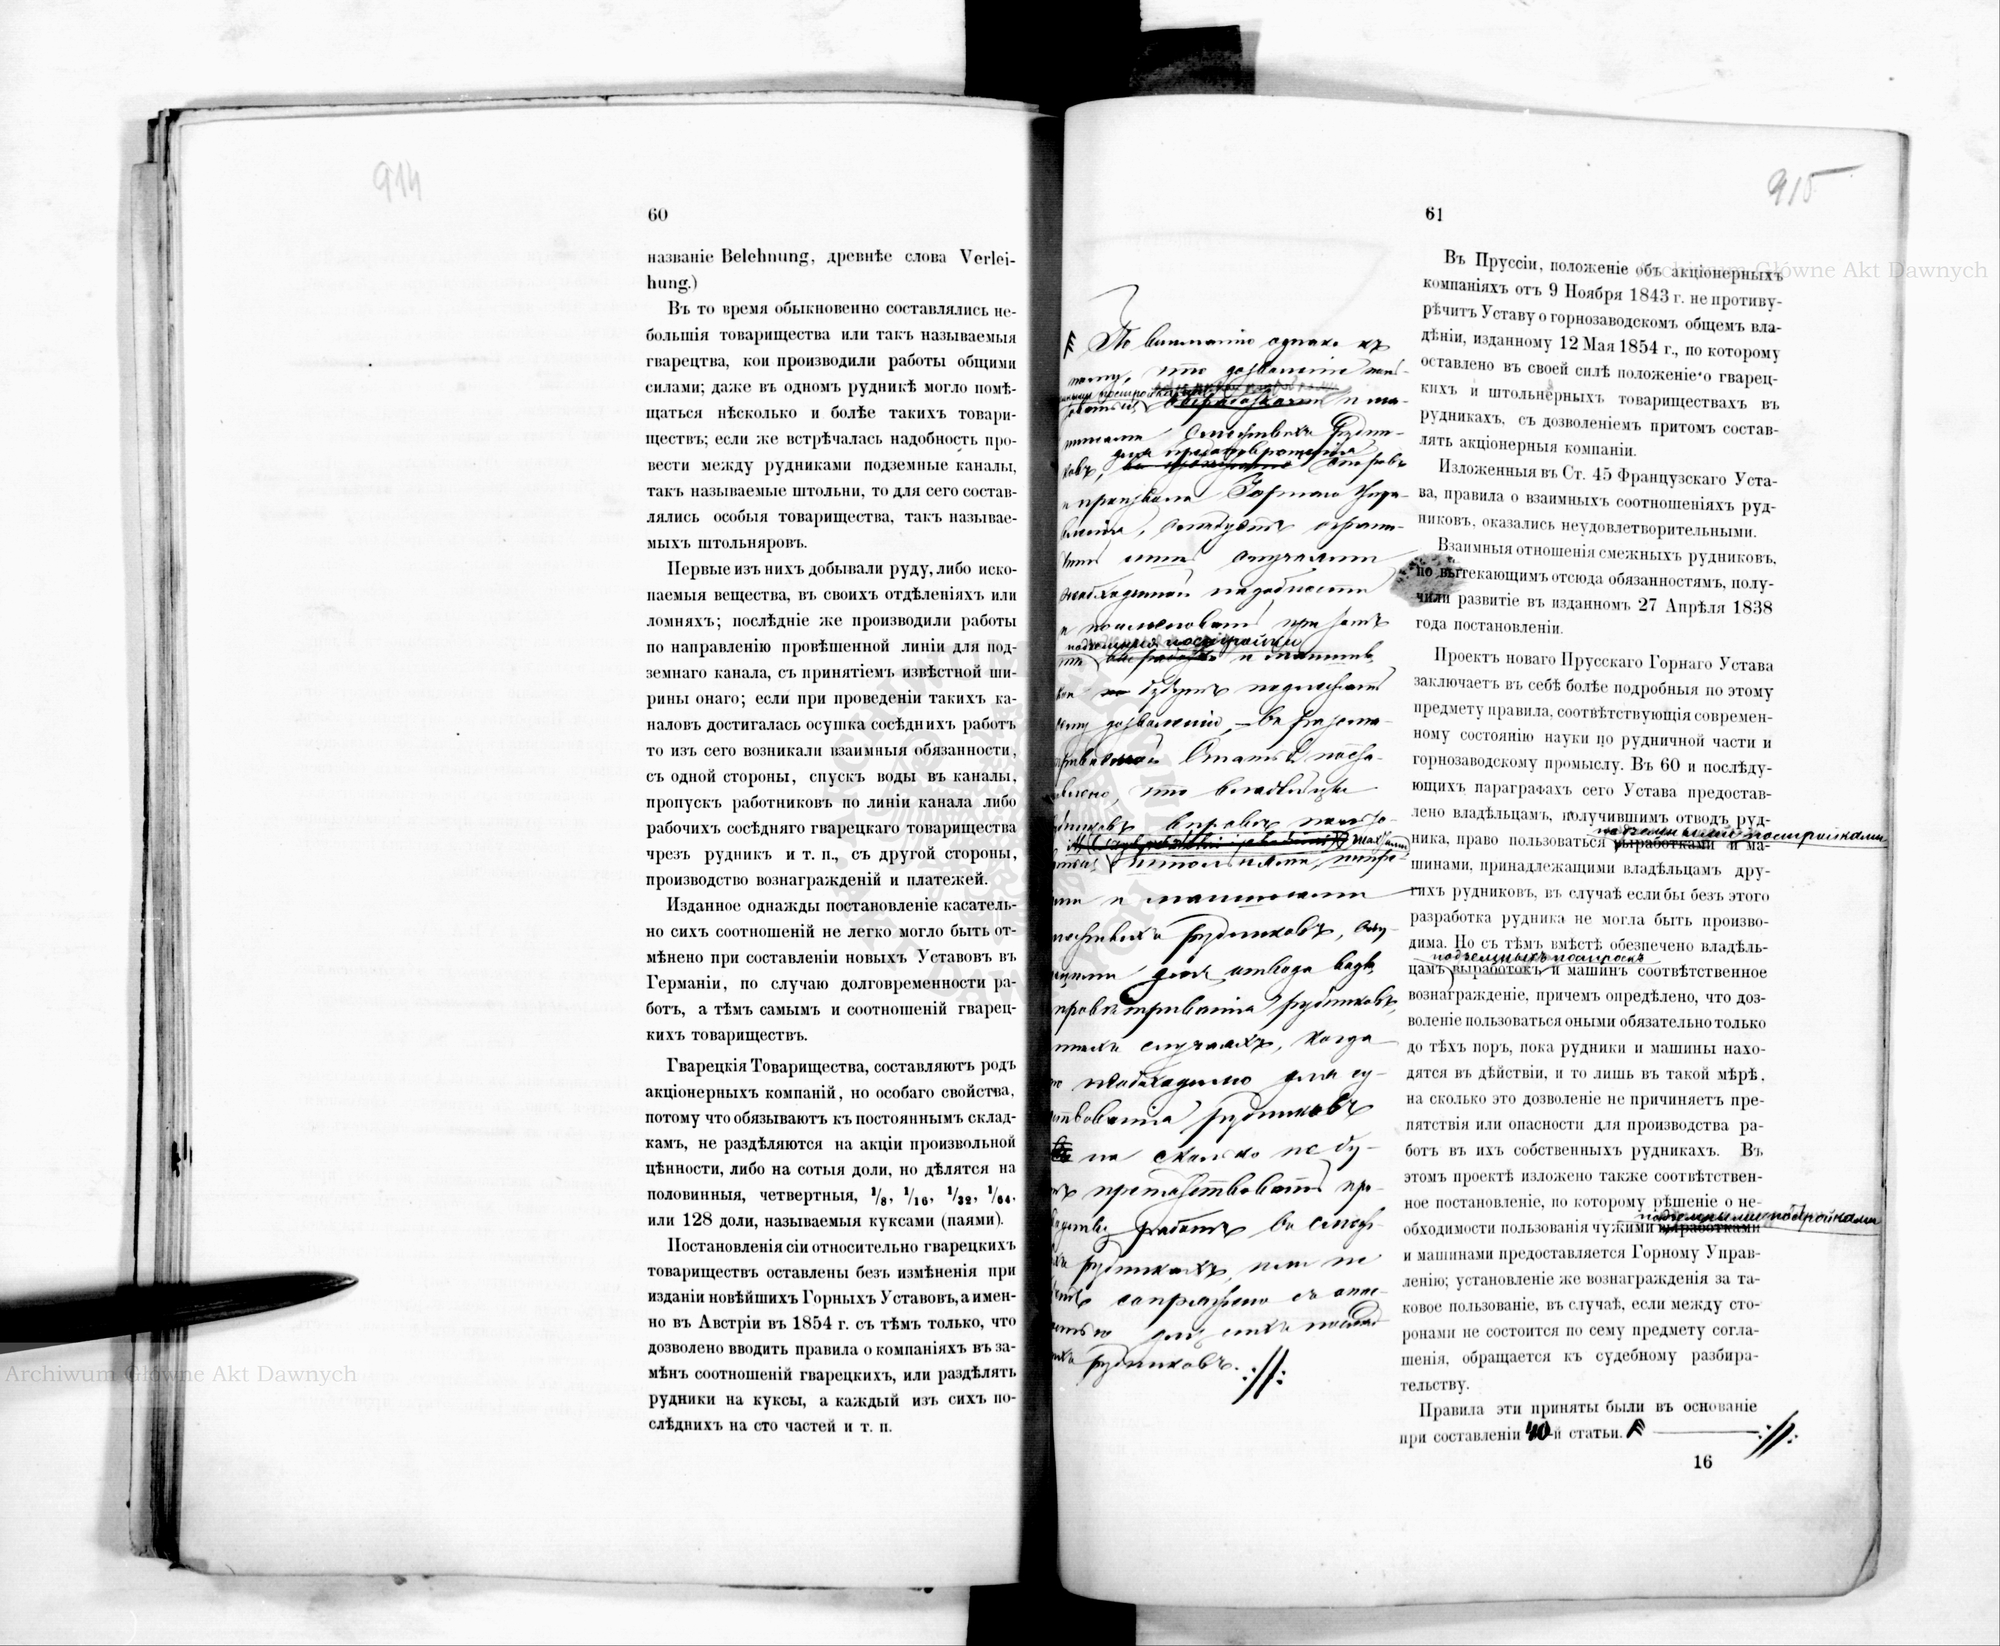 914
60
названіе Belehnung, древнѣе слова Verlei-
hung.)
Въ то время обыкновенно составлялись не-
большія товарищества или такъ называемыя
гварецтва, кои производили работы общими
силами; даже въ одномъ рудникѣ могло помѣ-
щаться нѣсколько и болѣе такихъ товари-
ществъ; если же встрѣчалась надобность про-
вести между рудниками подземные каналы,
такъ называемые штольни, то для сего состав-
лялись особыя товарищества, такъ называе-
мыхъ штольняровъ.
Первые изъ нихъ добывали руду, либо иско-
паемыя вещества, въ своихъ отдѣленіяхъ или
ломняхъ; послѣдніе же производили работы
по направленію провѣшенной линіи для под-
земнаго канала, съ принятіемъ извѣстной ши-
рины онаго; если при проведеніи такихъ ка-
наловъ достигалась осушка сосѣднихъ работъ
то изъ сего возникали взаимныя обязанности,
съ одной стороны, спускъ воды въ каналы,
пропускъ работниковъ по линіи канала либо
рабочихъ сосѣдняго гварецкаго товарищества
чрезъ рудникъ и т. п., съ другой стороны,
производство вознагражденій и платежей.
Изданное однажды постановленіе касатель-
но сихъ соотношеній не легко могло быть от-
мѣнено при составленіи новыхъ Уставовъ въ
Германіи, по случаю долговременности ра-
ботъ, а тѣмъ самымъ и соотношеній гварец-
кихъ товариществъ.
Гварецкія Товарищества, составляютъ родъ
акціонерныхъ компаній, но особаго свойства,
потому что обязываютъ къ постояннымъ склад-
камъ, не раздѣляются на акціи произвольной
цѣнности, либо на сотыя доли, но дѣлятся на
половинныя, четвертныя, 1/8, 1/16, 1/32, 1/64,
или 128 доли, называемыя куксами (паями).
Постановленія сіи относительно гварецкихъ
товариществъ оставлены безъ измѣненія при
изданіи новѣйшихъ Горныхъ Уставовъ, а имен-
но въ Австріи въ 1854 г. съ тѣмъ только, что
дозволено вводить правила о компаніяхъ въ за-
мѣнъ соотношеній гварецкихъ, или раздѣлять
рудники на куксы, а каждый изъ сихъ по-
слѣднихъ на сто частей и т. п.
915
61
Въ Пруссіи, положеніе объ акціонерныхъ
компаніяхъ отъ 9 Ноября 1843 г. не противу-
рѣчитъ Уставу о горнозаводскомъ общемъ вла-
дѣніи, изданному 12 Мая 1854 г., по которому
оставлено въ своей силѣ положеніе о гварец-
кихъ и штольнерныхъ товариществахъ въ
рудникахъ, съ дозволеніемъ притомъ состав-
лять акціонерныя компаніи.
Изложенныя въ Ст. 45 Французскаго Уста-
ва, правила о взаимныхъ соотношеніяхъ руд-
никовъ, оказались неудовлетворительными.
Взаимныя отношенія смежныхъ рудниковъ,
по вытекающимъ отсюда обязанностямъ, полу-
чили развитіе въ изданномъ 27 Апрѣля 1838
года постановленіи.
Проектъ новаго Прусскаго Горнаго Устава
заключаетъ въ себѣ болѣе подробныя по этому
предмету правила, соотвѣтствующія современ-
ному состоянію науки по рудничной части и
горнозаводскому промыслу. Въ 60 и послѣду-
ющихъ параграфахъ сего Устава предостав-
лено владѣльцамъ, получившимъ отводъ руд-
подземными постройками
ника, право пользоваться выработками и ма-
шинами, принадлежащими владѣльцамъ дру-
гихъ рудниковъ, въ случаѣ если бы безъ этого
разработка рудника не могла быть произво-
дима. Но съ тѣмъ вмѣстѣ обезпечено владѣль-
подземныхъ построекъ
цамъ выработокъ и машинъ соотвѣтственное
вознагражденіе, причемъ опредѣлено, что доз-
воленіе пользоваться оными обязательно только
до тѣхъ поръ, пока рудники и машины нахо-
дятся въ дѣйствіи, и то лишь въ такой мѣрѣ,
на сколько это дозволеніе не причиняетъ пре-
пятствія или опасности для производства ра-
ботъ въ ихъ собственныхъ рудникахъ. Въ
этомъ проектѣ изложено также соотвѣтствен-
ное постановленіе, по которому рѣшеніе о не-
подземными постройками
обходимости пользованія чужими выработками
и машинами предоставляется Горному Управ-
ленію; установленіе же вознагражденія за та-
ковое пользованіе, въ случаѣ, если между сто-
ронами не состоится по сему предмету согла-
шенія, обращается къ судебному разбира-
тельству.
Правила эти приняты были въ основаніе
при составленіи 40-й статьи.
16
По вниманію однако къ
тому, что дозволеніе
и ма-
для предотвращенія
необходимой надобности
подземныя постройки
и машинъ
будутъ подлежать
дозволенію, въ
что владѣльцы
и машинами
рудниковъ,
для отвода воды
провѣтриванія рудниковъ,
случаяхъ, когда
необходимо для су-
рудниковъ
на сколько не бу-
препятствовать про-
работъ въ
рудникахъ, или не
сопряжено съ опас-
рудниковъ.
Archiwum Główne Akt Dawnych
Archiwum Główne Akt Dawnych